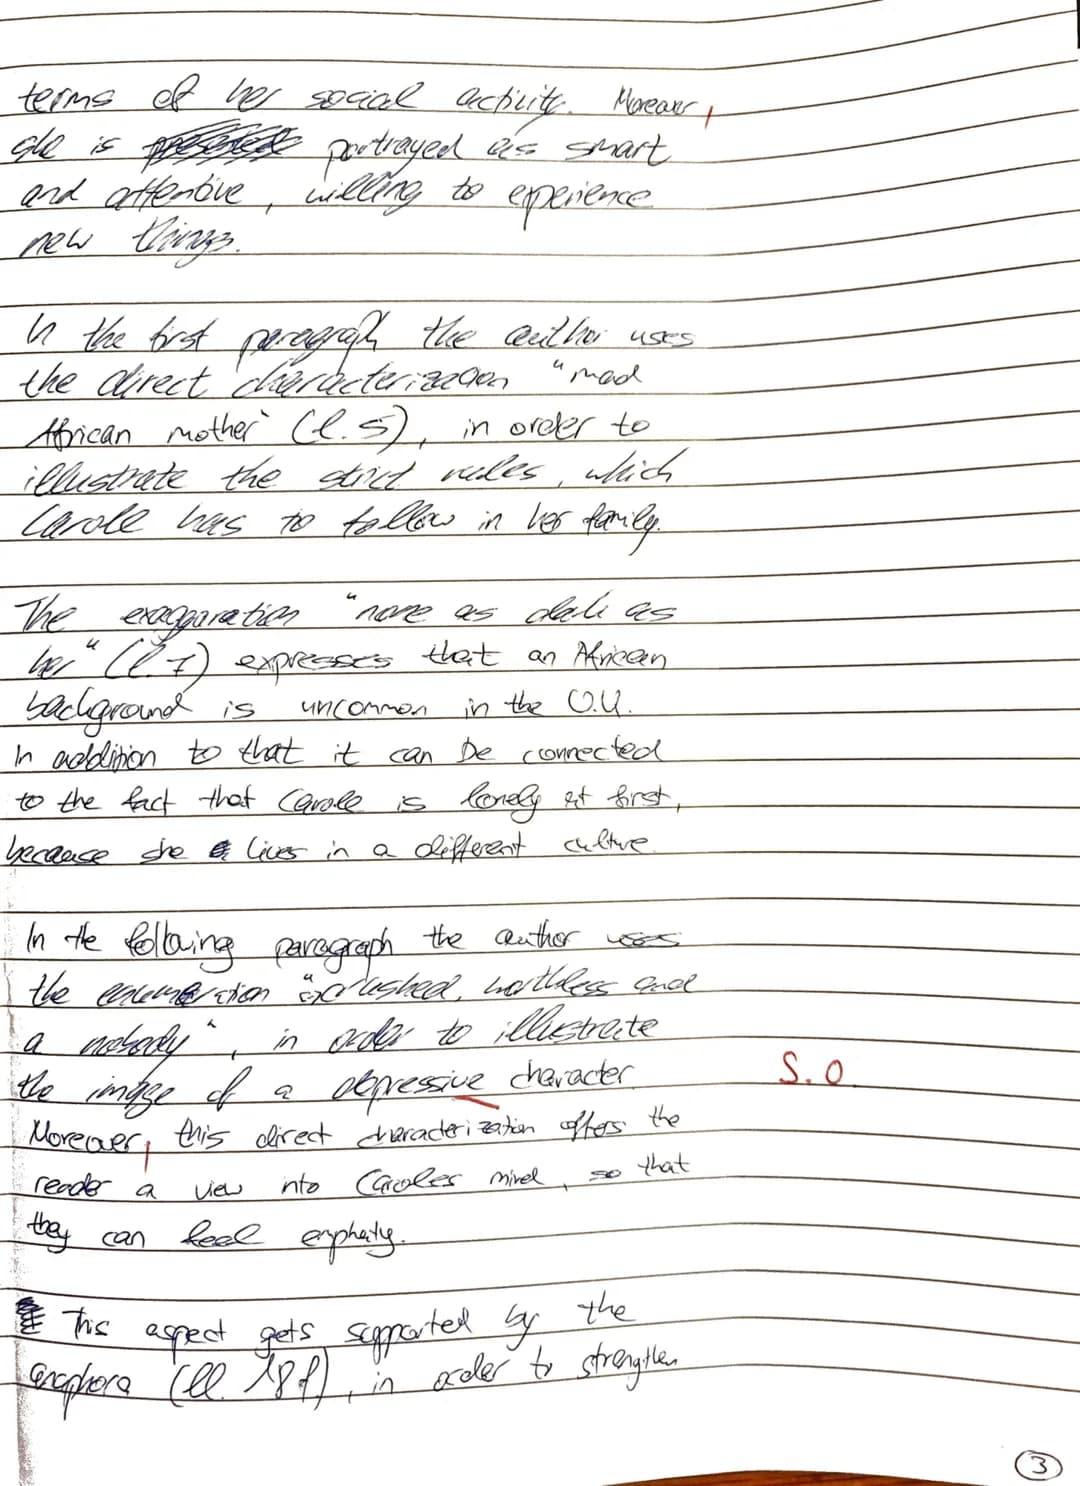 terms of her social activity. Moreover,
she is portrayed as smart
and attentive, willing to experience
new things.
In the first paragraph the author uses
the direct characterization "mad
African mother" (l.5), in order to
illustrate the strict rules, which
Carole has to follow in her family.
The exaggaration "none as dark as
her" (l.7) expresses that an African
background is uncommon in the U.K.
In addition to that it can be connected
to the fact that Carole is lonely at first,
because she lives in a different culture.
In the following paragraph the author uses
the enumeration "crushed, worthless and
a nobody", in order to illustrate
the image of a depressive character.
S.O.
Moreover, this direct characterization offers the
reader a view into Caroles mind, so that
they can feel emphaty.
This aspect gets supported by the
anaphora (ll. 18f), in order to strengthen
3